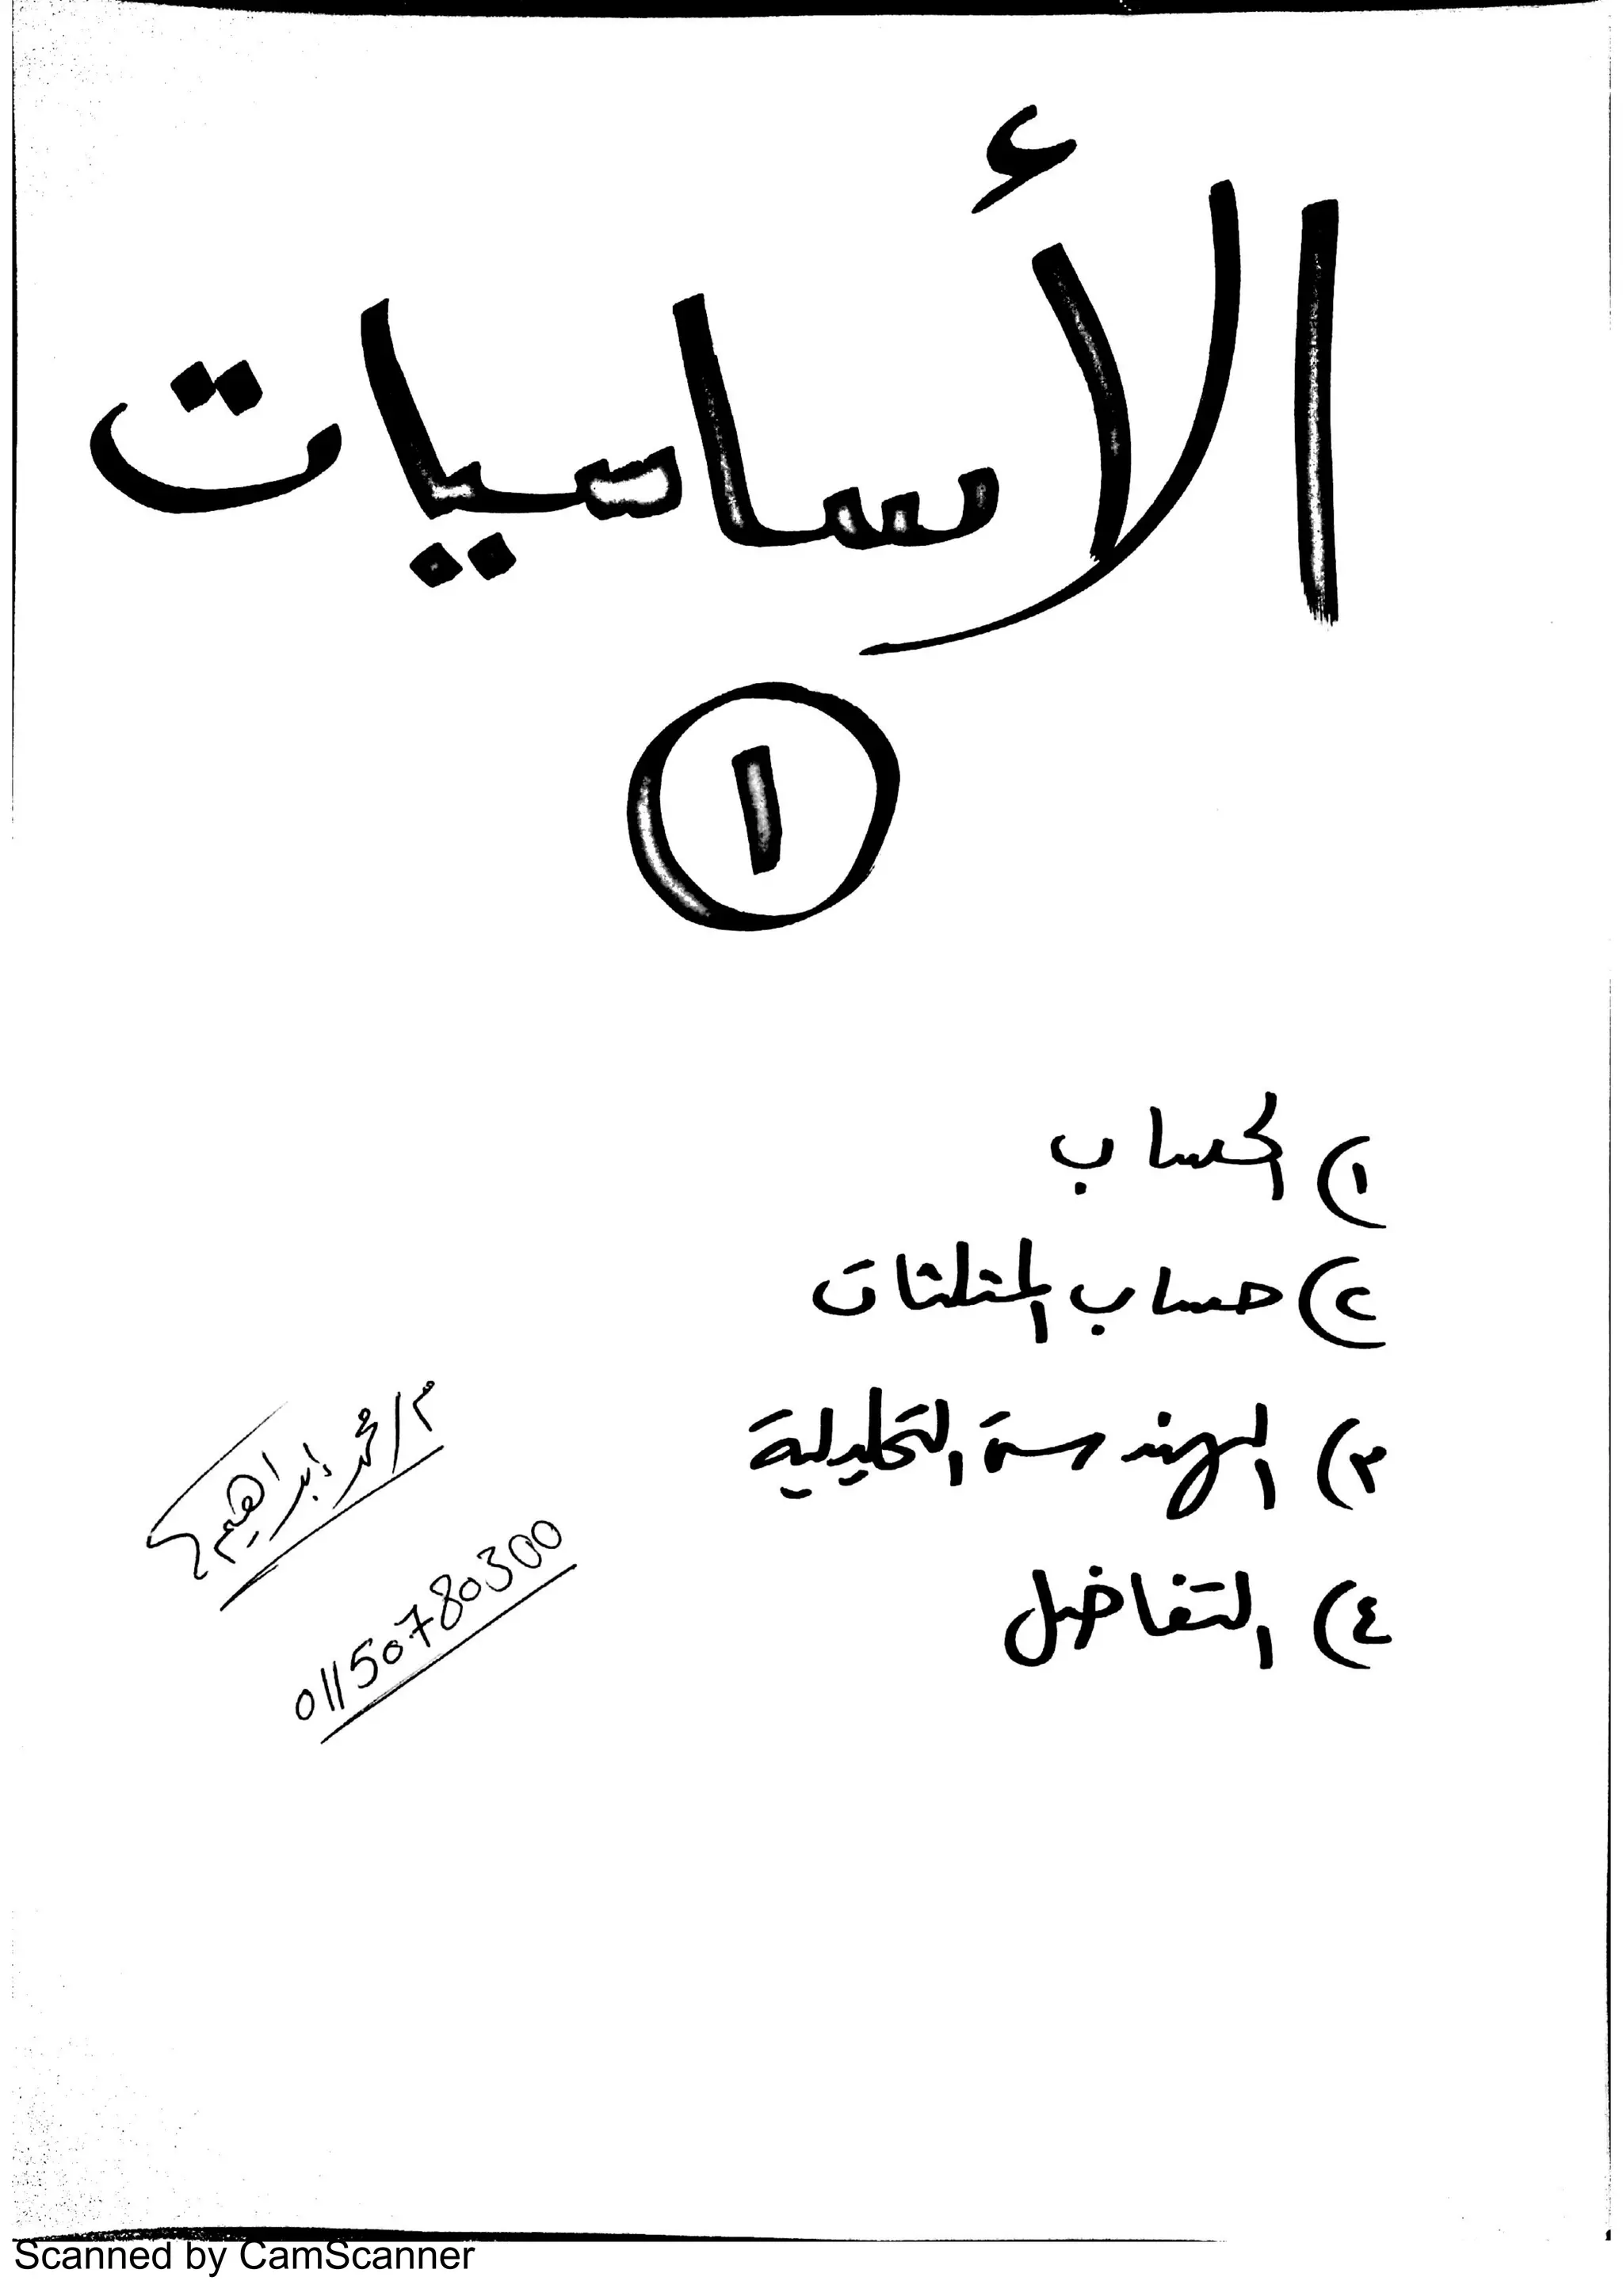 الأساسيات
١
١) الحساب
٢) حساب المثلثات
٣) الهندسة التحليلية
٤) التفاضل
م/محمد إبراهيم
01150780300
Scanned by CamScanner